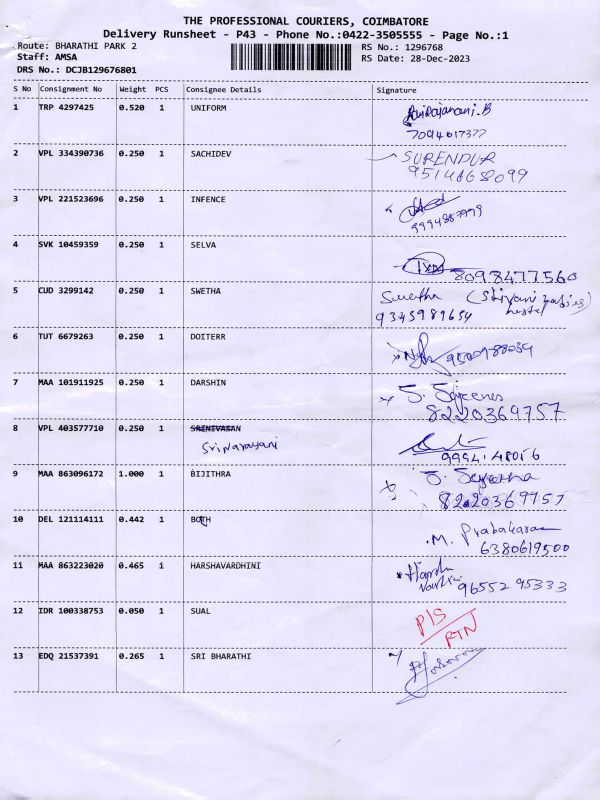 THE PROFESSIONAL COURIERS, COIMBATORE
Delivery Runsheet - P43 - Phone No.:0422-3505555 - Page No.:1
Route: BHARATHI PARK 2 RS No.: 1296768
Staff: AMSA RS Date: 28-Dec-2023
DRS No.: DCJB129676801
S No Consignment No Weight PCS Consignee Details Signature
1 TRP 4297425 0.520 1 UNIFORM
2 VPL 334390736 0.250 1 SACHIDEV SURENDUR
3 VPL 221523696 0.250 1 INFENCE
4 SVK 10459359 0.250 1 SELVA
8098477560
5 CUD 3299142 0.250 1 SWETHA Swetha
9345989654 hostel
6 TUT 6679263 0.250 1 DOITERR
7 MAA 101911925 0.250 1 DARSHIN
8220369757
8 VPL 403577710 0.250 1 SRINIVASAN
Srinarayani
9 MAA 863096172 1.000 1 BIJITHRA
8220369757
10 DEL 121114111 0.442 1 BOTH
M. Prabakaran
6380619500
11 MAA 863223020 0.465 1 HARSHAVARDHINI
9655295333
12 IDR 100338753 0.050 1 SUAL P/S
RTN
13 EDQ 21537391 0.265 1 SRI BHARATHI